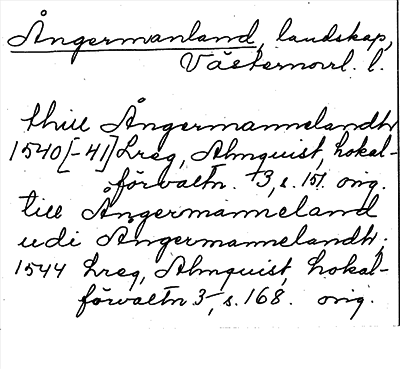 Ångermanland, landskap,
Västernorrl. l.
thill Ångermannelandh
1540[-41] Lreg, Almquist, Lokal-
förvaltn. 3, s. 151. orig.
till Ångermanneland
udi Ångermannelandh,
1544 Lreg, Almquist, Lokal-
förvaltn 3, s. 168. orig.